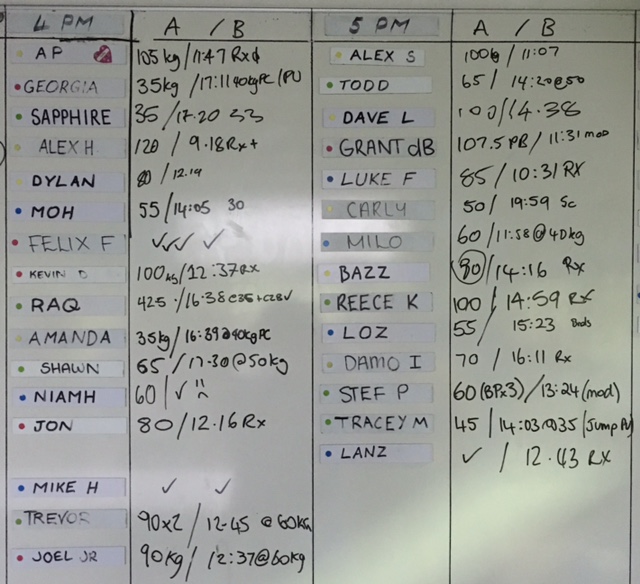 4 PM A / B
AP 105kg / 11:47 Rx
GEORGIA 35kg / 17:11 40kg PC / PU
SAPPHIRE 35 / 17.20 33
ALEX H 120 / 9.18 Rx+
DYLAN 80 / 12.19
MOH 55 / 14:05 30
FELIX F ✓✓✓ ✓
KEVIN D 100kg / 12:37 RX
RAQ 42.5 / 16:38
AMANDA 35kg / 16:39 @ 40kg PC
SHAWN 65 / 17.30 @ 50kg
NIAMH 60 / ✓
JON 80 / 12.16 Rx
MIKE H ✓ ✓
TREVOR 90x2 / 12.45 @ 60kg
JOEL JR 90kg / 12:37 @ 60kg
5 PM A / B
ALEX S 100kg / 11:07
TODD 65 / 14:20 @ 50
DAVE L 100 / 14.38
GRANT dB 107.5 PB / 11:31 mod
LUKE F 85 / 10:31 RX
CARLY 50 / 19:59 Sc
MILO 60 / 11:58 @ 40kg
BAZZ 90 / 14:16 Rx
REECE K 100 / 14:59 RX
LOZ 55 / 15:23 Bnds
DAMO I 70 / 16:11 Rx
STEF P 60 (BPx3) / 13:24 (mod)
TRACEY M 45 / 14:03 @ 35 (Jump PU)
LANZ ✓ / 12.43 RX